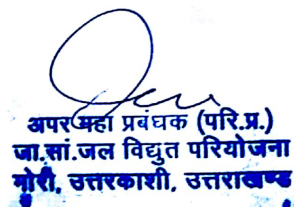 अपर महा प्रबंधक (परि.प्र.)
जा.सां.जल विद्युत परियोजना
मोरी, उत्तरकाशी, उत्तराखण्ड